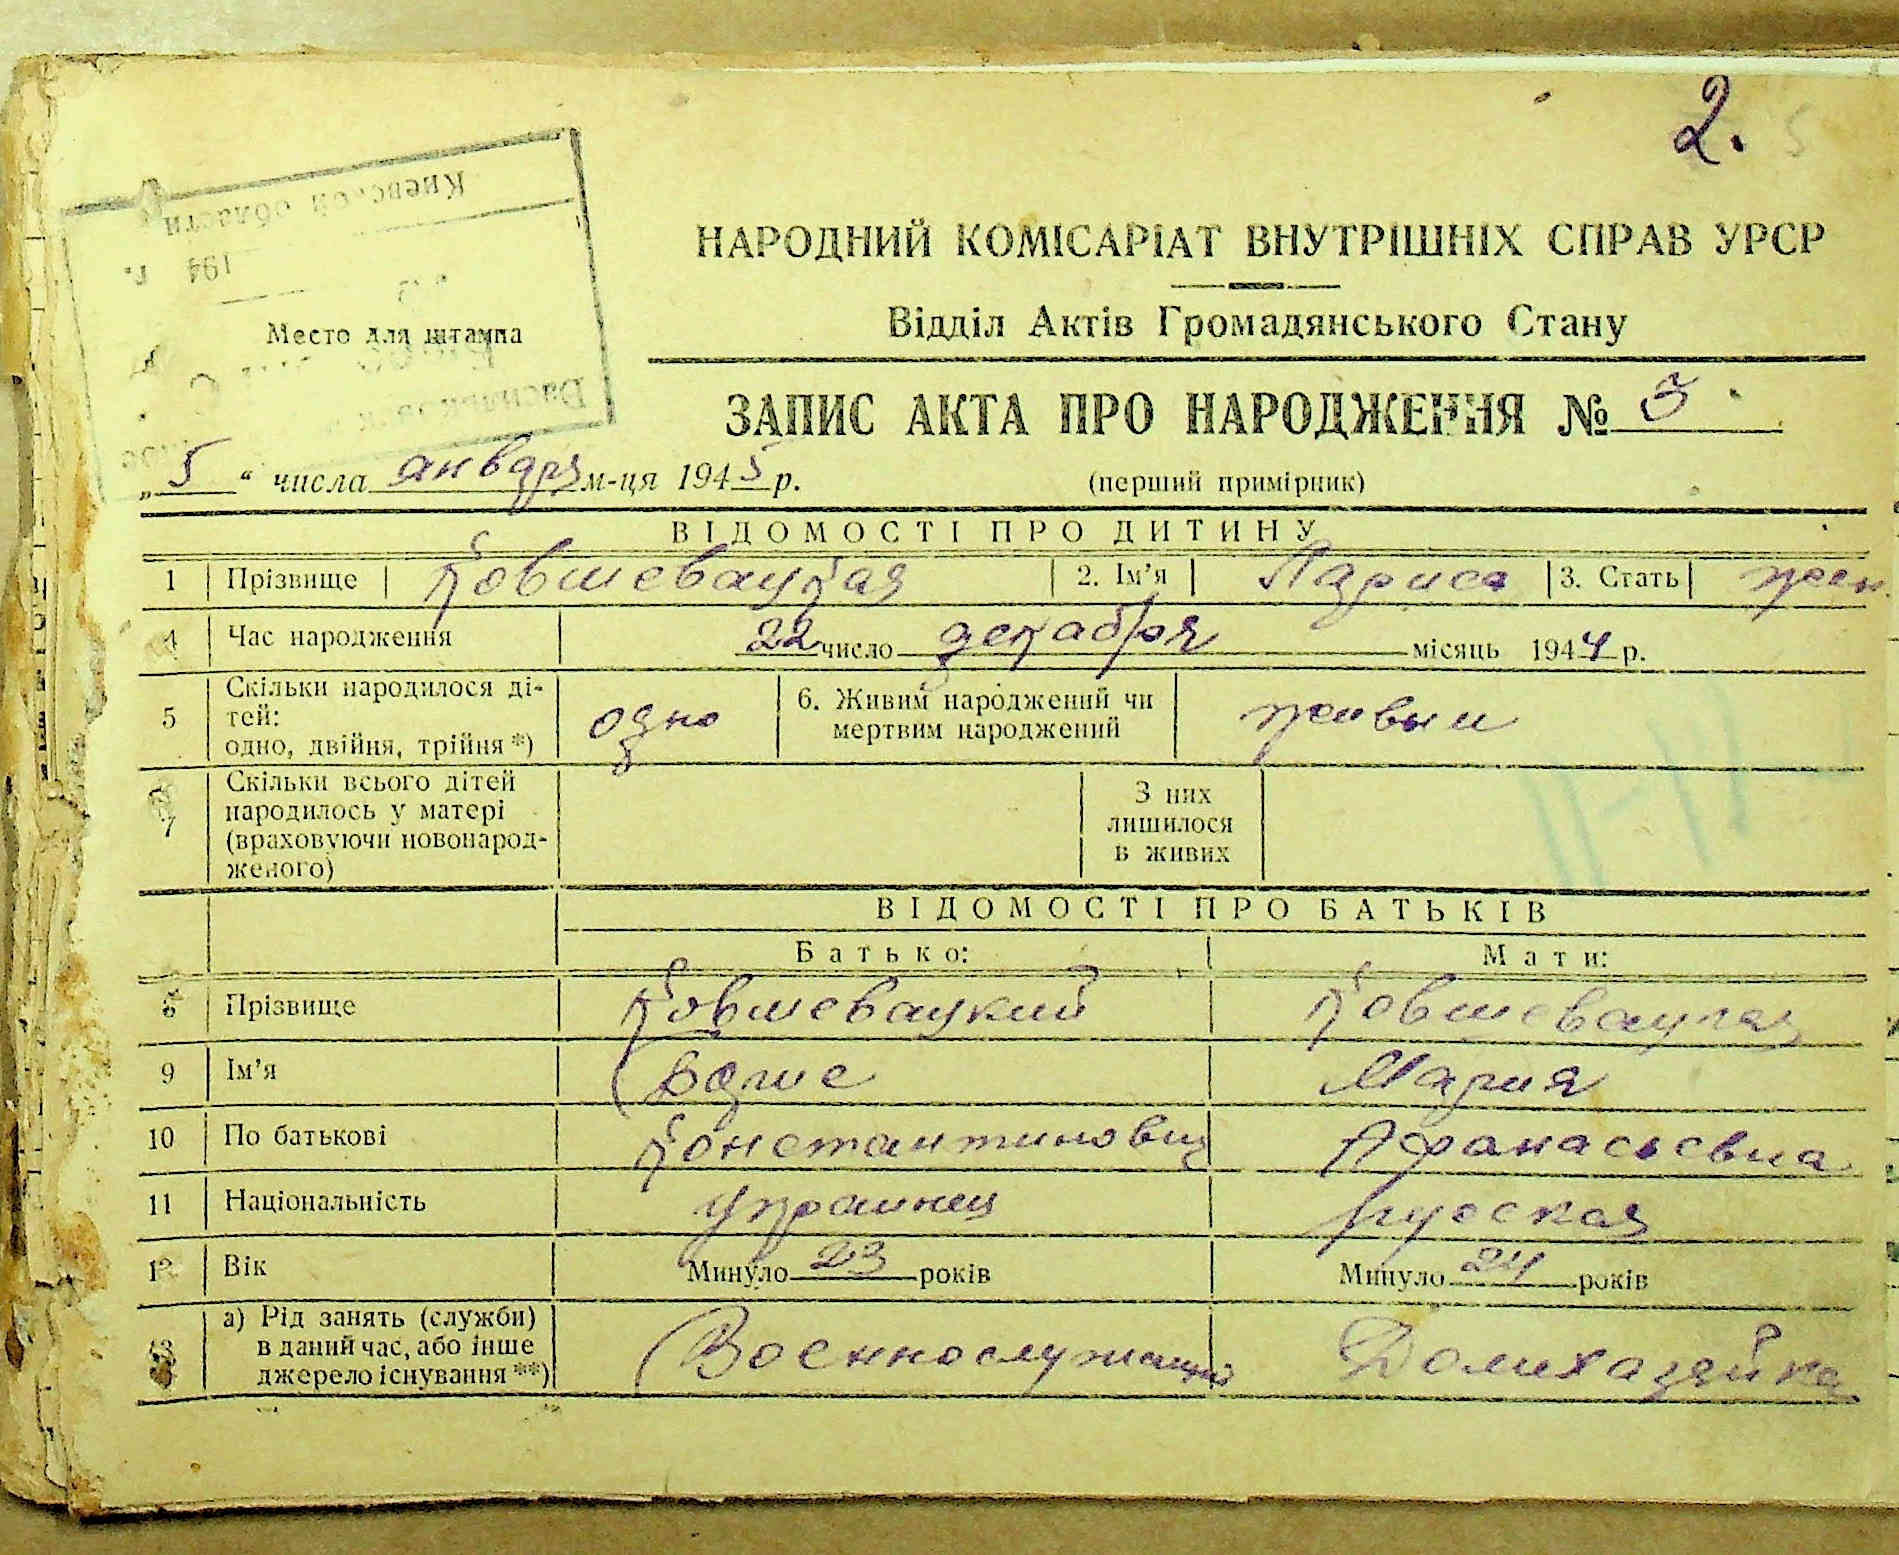 2.
Киевской области
194 г.
Место для штампа
НАРОДНИЙ КОМІСАРІАТ ВНУТРІШНІХ СПРАВ УРСР
Відділ Актів Громадянського Стану
ЗАПИС АКТА ПРО НАРОДЖЕННЯ № 3
„5“ числа января м-ця 1945 р. (перший примірник)
ВІДОМОСТІ ПРО ДИТИНУ
1 Прізвище Ковшевацкая 2. Ім’я Лариса 3. Стать жен.
4 Час народження 22 число декабря місяць 1944 р.
5 Скільки народилося ді-
тей:
одно, двійня, трійня *) одно 6. Живим народжений чи
мертвим народжений живым
7 Скільки всього дітей
народилось у матері
(враховуючи новонарод-
женого) З них
лишилося
в живих
ВІДОМОСТІ ПРО БАТЬКІВ
Батько: Мати:
8 Прізвище Ковшевацкий Ковшевацкая
9 Ім’я Борис Мария
10 По батькові Константинович Афанасьевна
11 Національність украинец русская
12 Вік Минуло 23 років Минуло 24 років
13 а) Рід занять (служби)
в даний час, або інше
джерело існування **) Военнослужащий Домохазяйка